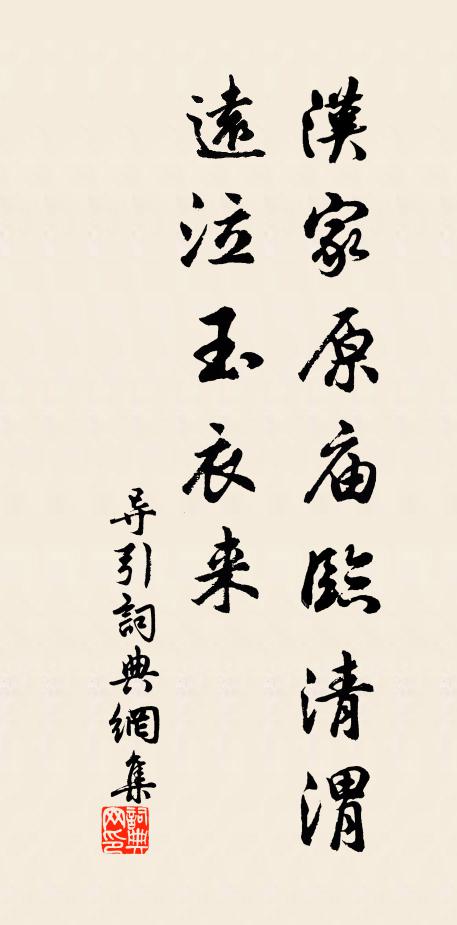 漢家原庙臨清渭
遠泣玉衣来
导引詞典網集
詞典网印